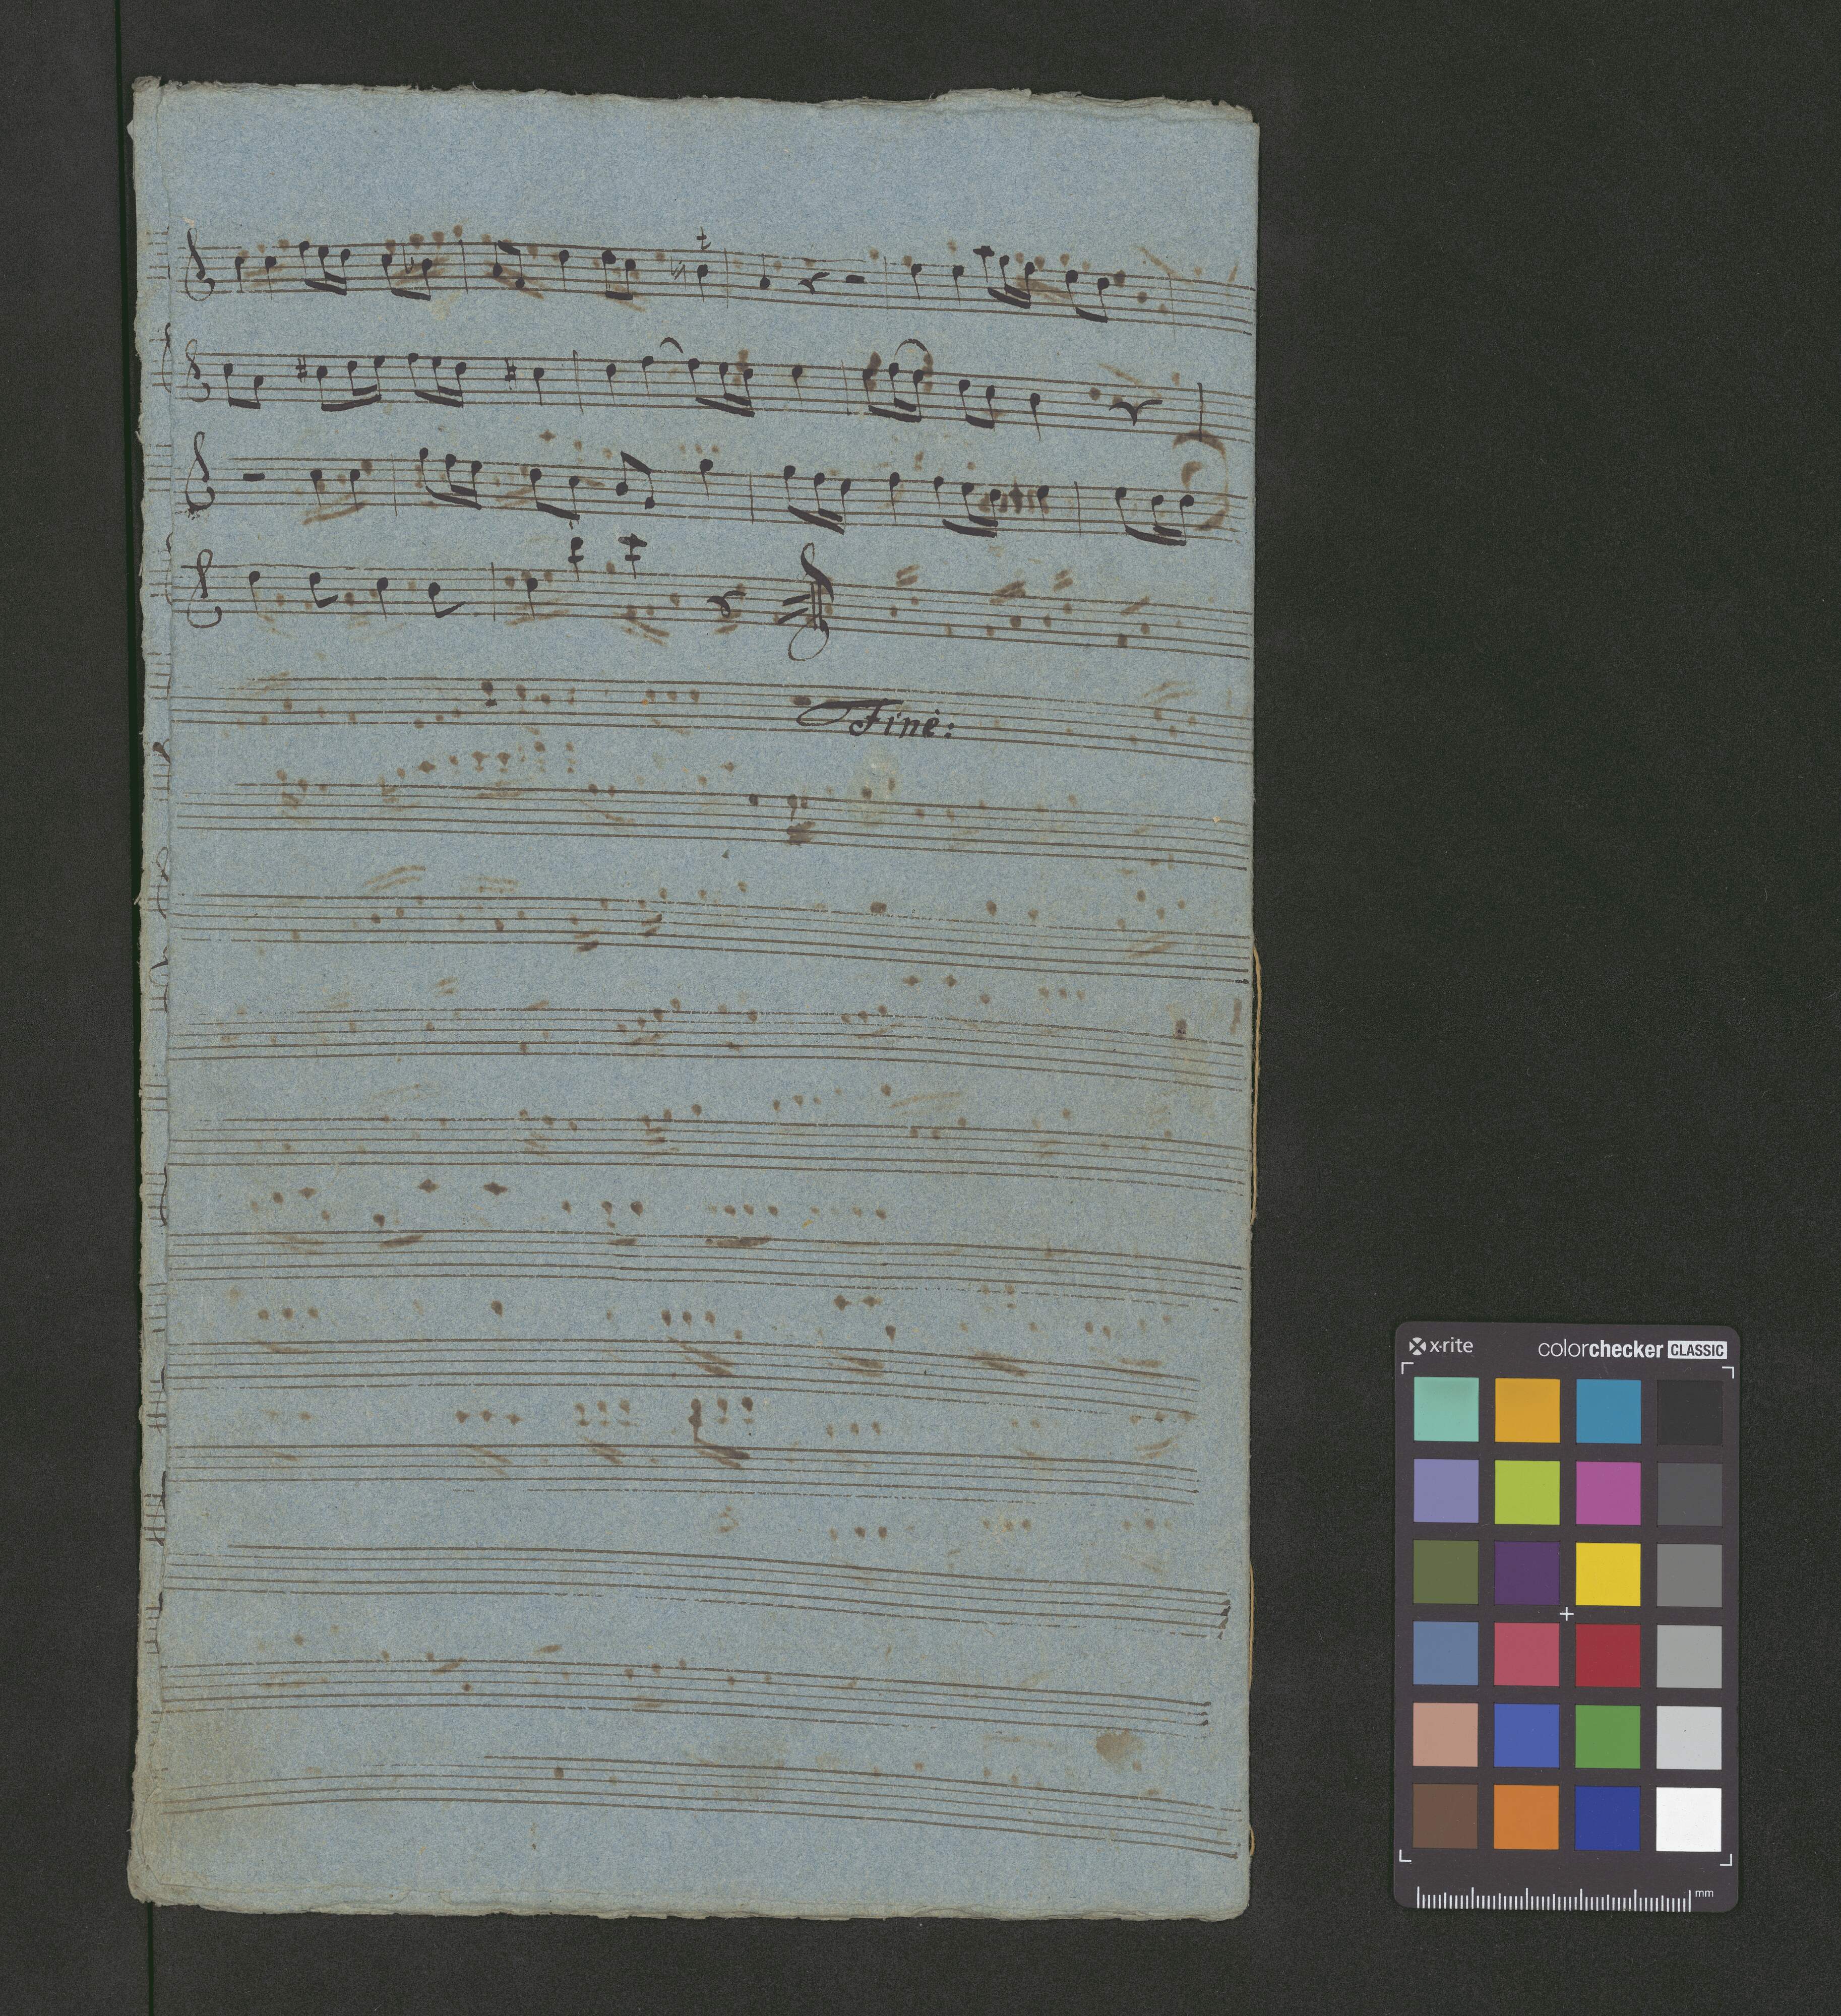 t
Fine:
x·rite
colorchecker CLASSIC
mm